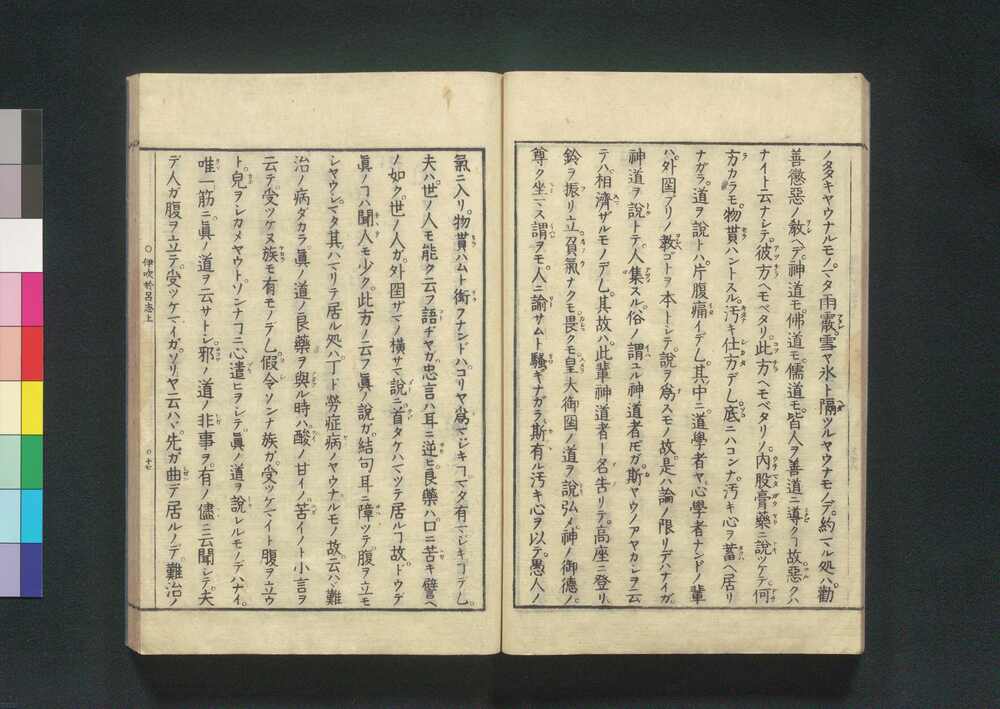 ノタタキヤウナルモノ。マタ雨霰。雪ヤ氷ト隔ツルヤウナモノデ。約マル処ハ。勸
善懲惡ノ敎ヘデ。神道モ。佛道モ。儒道モ。皆人ヲ善道ニ導クヿ故。惡クハ
ナイト云ナシテ。彼方ヘモベタリ。此方ヘモベタリノ。内股膏藥ニ說ツケテ。何
方カラモ。物貰ハントスル。汚キ仕方デノ乚。底ニハコンナ。汚キ心ヲ蓄ヘ居リ
ナガラ。道ヲ說トハ。片腹痛イデノ乚。其中ニ。道學者ヤ。心學者ナンドノ輩
ハ。外国ブリノ敎ゴトヲ。本トシテ。說ヲ爲スモノ故。是ハ論ノ限リデハナイガ。
神道ヲ說トテ。人集スル。俗ノ謂ユル神道者𪜈ガ。斯ヤウノアヤカシヲ云
テハ。相濟ザルモノデノ乚。其故ハ。此輩神道者ト名告リテ。高座ニ登リ。
鈴ヲ振リ立。負氣ナクモ。畏クモ。皇大御国ノ道ヲ說弘メ。神ノ御德ノ。
尊ク坐マス謂ヲモ。人ニ諭サムト騷ギナガラ。斯有ル汚キ心ヲ以テ。愚人ノ
氣ニ入リ。物貰ハムト衒フナンドハ。コリヤ爲マジキヿ。マタ有マジキヿデノ乚。
夫ハ。世ノ人モ能ク云フ語ヂヤガ。忠言ハ耳ニ逆ヒ。良藥ハ口ニ苦キ譬ヘ
ノ如ク。世ノ人ガ。外国ザマノ橫サマ說ニ。首タケハマツテ居ルヿ故。ドウデ
眞ノヿハ。聞人モ少ク。此方ノ云フ眞ノ說ガ。結句耳ニ障ツテ。腹ヲ立モ
シヤウシ。マタ其ハマリテ居ル処ハ。丁ド勞症病ノヤウナルモノ故。云ハヾ難
治ノ病ダカラ。眞ノ道ノ良藥ヲ與ル時ハ。酸ノ甘イノ。苦イノト小言ヲ
云テ。受ツケヌ族モ有モノデノ乚。假令ソンナ族ガ。受ツケマイト。腹ヲ立ウ
ト。皃ヲシカメヤウト。ソンナヿニ心遣ヒヲシテ。眞ノ道ヲ說レルモノデハナイ。
唯一筋ニ。眞ノ道ヲ云サトシ。邪ノ道ノ非事ヲ。有ノ儘ニ云聞シテ。夫
デ人ガ腹ヲ立テ。受ツケマイガ。ソリヤ云ハヾ。先ガ曲デ居ルノデ。難治ノ
○伊吹於呂志上
○十七